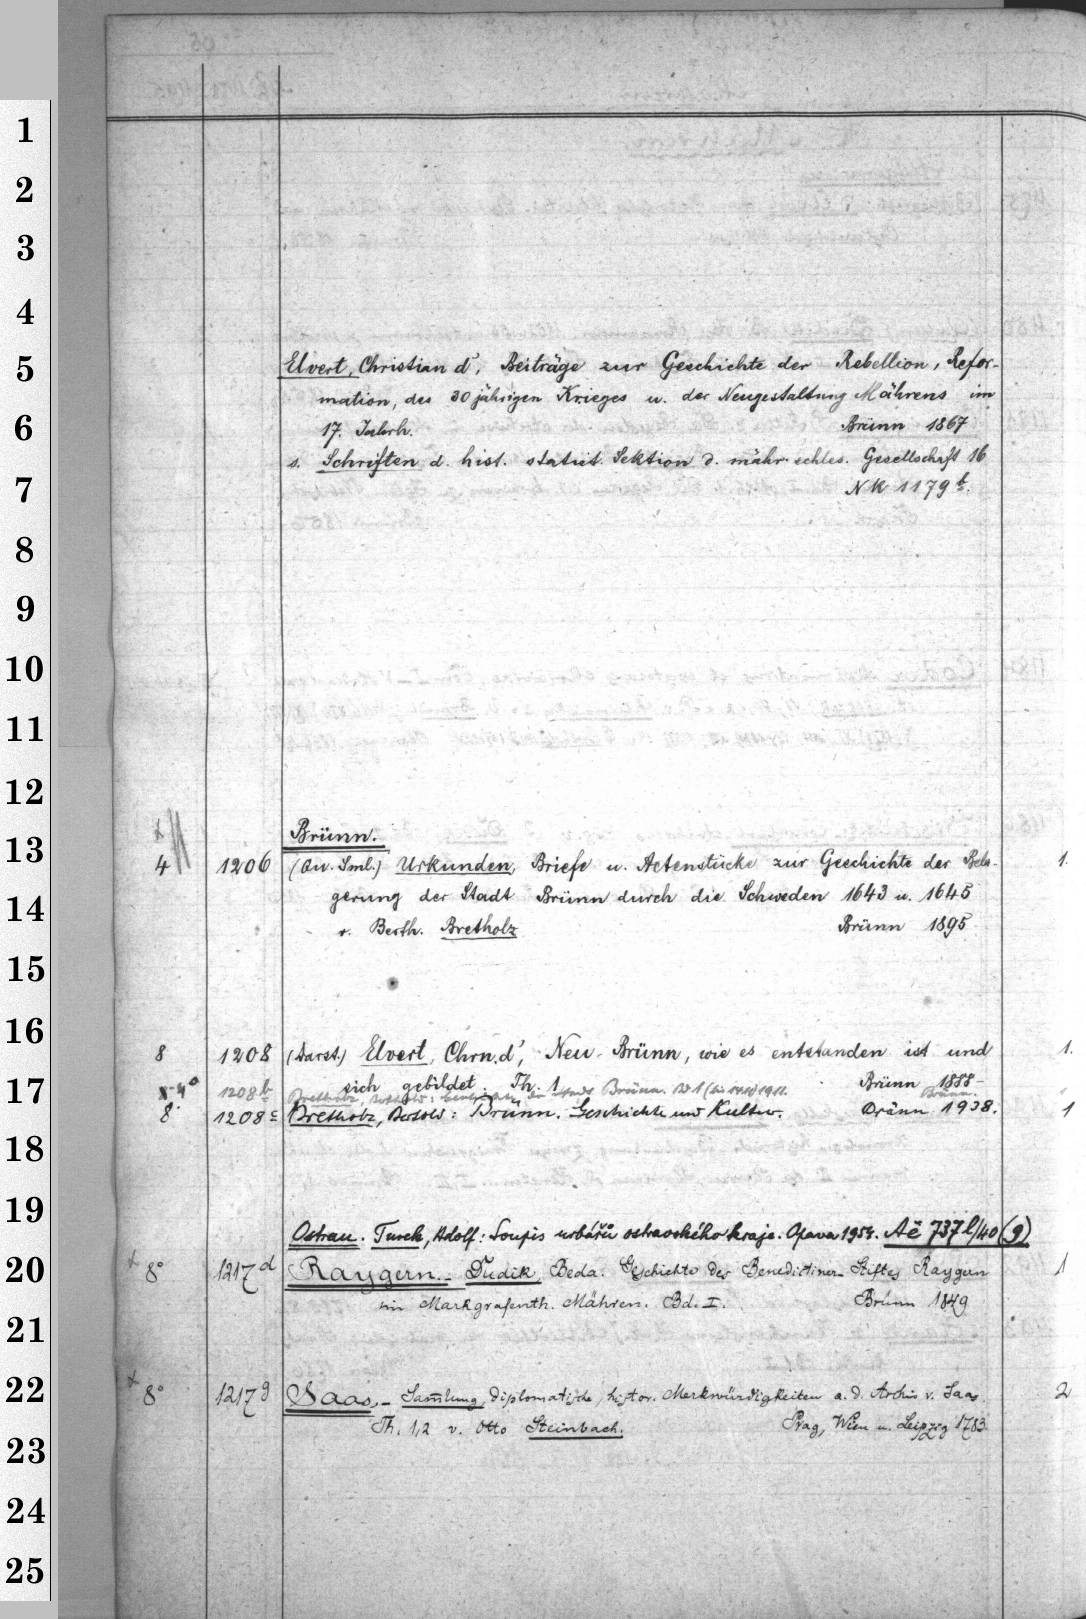 1
2
3
4
5
6
7
8
9
10
11
12
13
14
15
16
17
18
19
20
21
22
23
24
25
Elvert, Christian d', Beiträge zur Geschichte der Rebellion, Refor-
mation, des 30 jährigen Krieges u. der Neugestaltung Mährens im
17. Jahrh. Brünn 1867
s. Schriften d. hist. statist. Sektion d. mähr. schles. Gesellschaft 16
NR 1179 b.
Brünn.
4 1206 (Qu. Smlg.) Urkunden, Briefe u. Actenstücke zur Geschichte der Bela- 1.
gerung der Stadt Brünn durch die Schweden 1643 u. 1645
v. Berth. Bretholz Brünn 1895
8 1208 (Darst.) Elvert, Chrn. d', Neu-Brünn, wie es entstanden ist und 1.
sich gebildet. Th. 1 Brünn 1888-
4° 1208 b Bretholz, Berthold: Stadt Brünn. Bd 1 (bis 1411) 1911. Brünn.
8° 1208 c Bretholz, Bertold: Brünn. Geschichte und Kultur. Brünn 1938. 1
Ostrau. Turek, Adolf: Soupis urbářů ostravského kraje. Opava 1954. Aë 737 l/40 (9)
x 8° 1217 d Raygern. - Dudik Beda. Geschichte des Benedictiner-Stiftes Raygern 1
im Markgrafenth. Mähren. Bd. I. Brünn 1849
x 8° 1217 g Saas. - Sam̅lung, diplomatische, histor. Merkwürdigkeiten a. d. Archiv v. Saas 2
Th. 1,2 v. Otto Steinbach. Prag, Wien u. Leipzig 1783